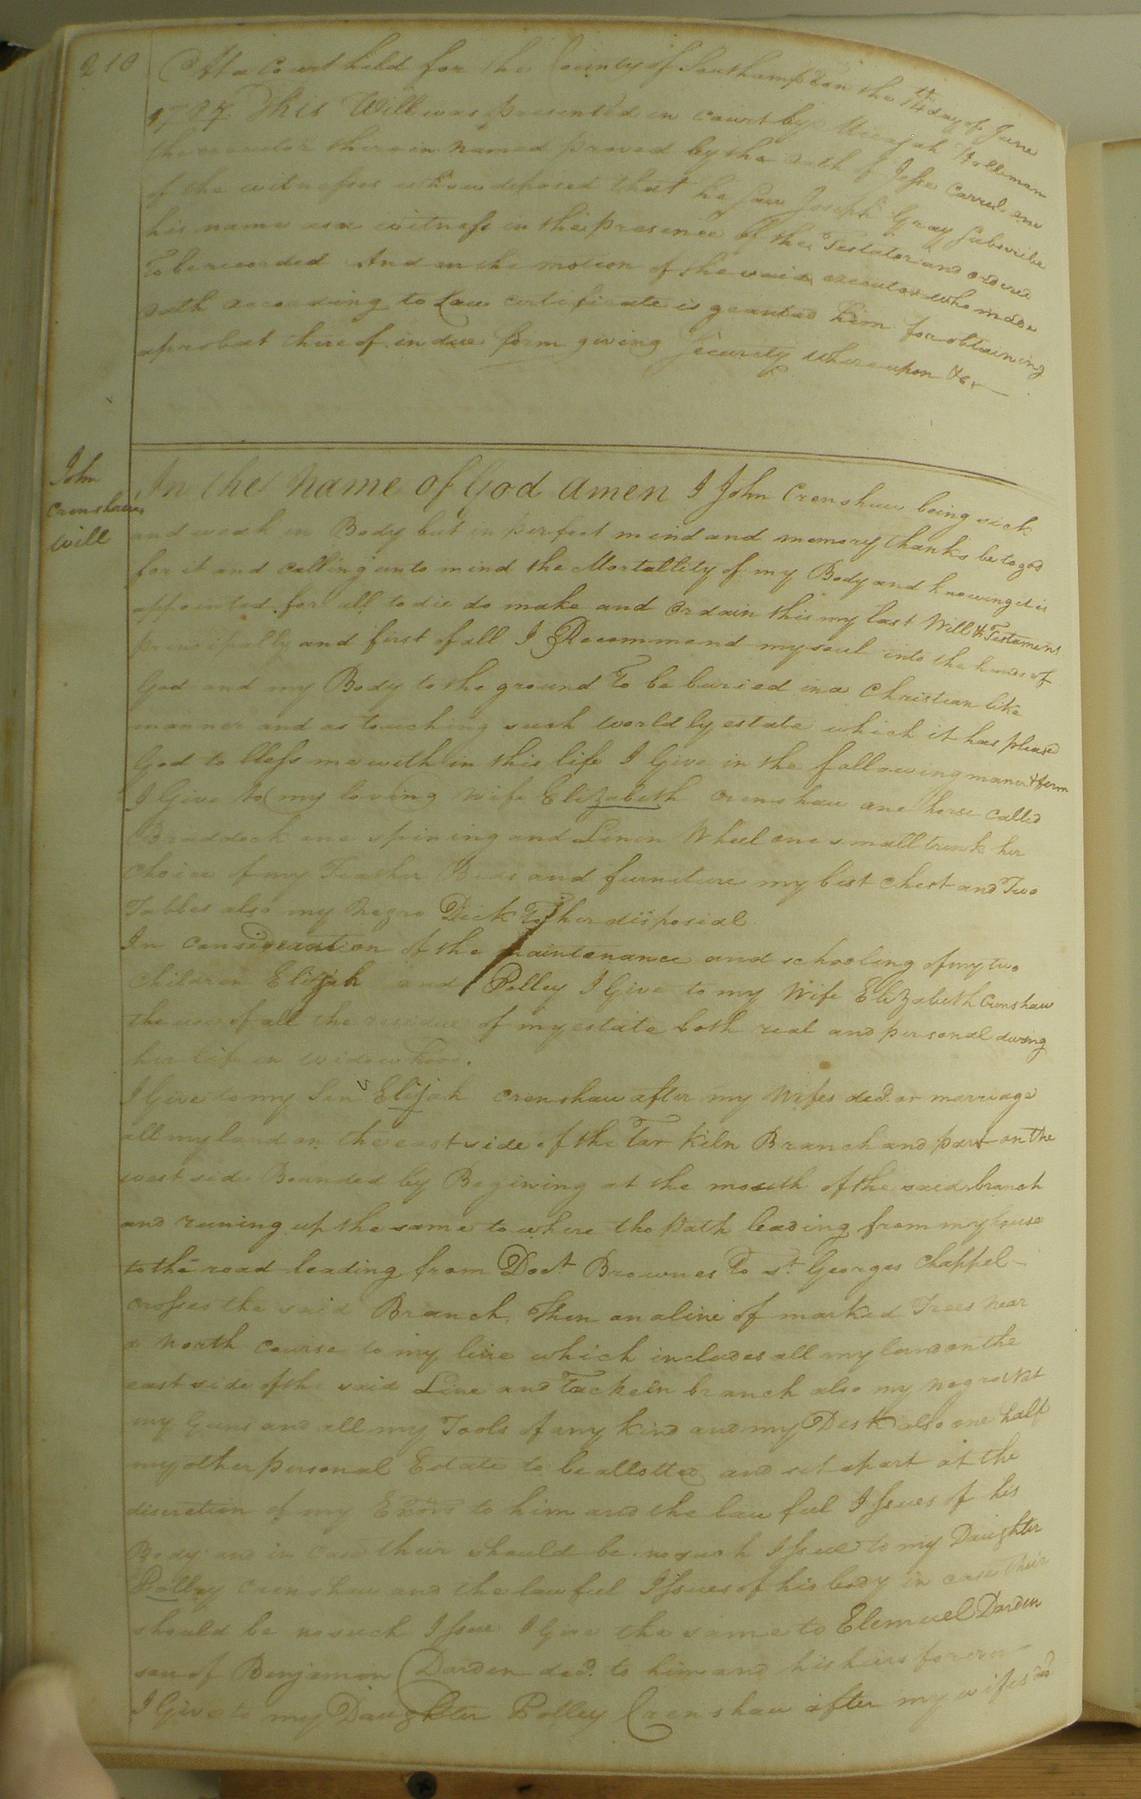 210
At a Court held for the County of Southampton the 14th day of June
1787 This Will was Presented in court by Micajah Holleman
the executor therein named proved by the oath of Jesse Carrel one
of the witnesses who deposed that he saw Joseph Gray Subscribe
his name as a witness in the presence of the Testator and ordered
To be recorded And on the motion of the said executor who made
oath according to Law certificate is granted him for obtaining
a probat thereof in due form giving Security whereupon &c
John
Crenshaws
Will
In the Name of God Amen I John Crenshaw being sick
and weak in Body but in perfect mind and memory thanks be to god
for it and calling unto mind the Mortallity of my Body and knowing it is
appointed for all to die do make and ordain this my last Will & Testament
principally and first of all I Recommend my soul into the hands of
God and my Body to the ground To be buried in a Christian like
manner and as touching such worldly estate which it has please
God to bless me with in this life I Give in the following maner & form
I Give to my loving Wife Elizabeth Crenshaw one horse called
Braddock one spining and Linen Wheel one small trunk her
Choice of my Feather Beds and furniture my best Chest and Two
Tables also my Negro Dick To her disposial
In consideration of the maintenance and schooling of my two
Children Elijah and Polley I Give to my Wife Elizabeth Crenshaw
the use of all the residue of my estate both real and personal during
her life in widowhood.
I Give to my Son Elijah Crenshaw after my Wifes decd. or marriage
all my land on the east side of the Tar Kiln Branch and part on the
west side Bounded by Begining at the mouth of the said branch
and runing up the same to where the Path leading from my house
to the road leading from Doct Brownes To St. Georges Chappel
crosses the said Branch, then on a line of marked Trees Near
a North course to my line which includes all my land on the
east side of the said Line and Tarkeln branch also my negro Nat
my Guns and all my Tools of any kind and my Desk also one half
my other personal Estate to be allotted and set apart at the
discretion of my Exors to him and the lawfull Issues of his
Body and in case their should be no such Issue to my Daughter
Polley Crenshaw and the lawfull Issues of his body in case their
should be no such Issue I Give the same to Elemuel Darden
son of Benjamin Darden decd. to him and his heirs forever
I Give to my Daughter Polley Crenshaw after my wifes decd